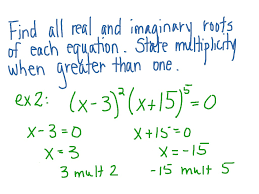 Find all real and imaginary roots
of each equation. State multiplicity
when greater than one.
ex2: (x-3)²(x+15)⁵=0
x-3=0 x+15=0
x=3 x=-15
3 mult 2 -15 mult 5